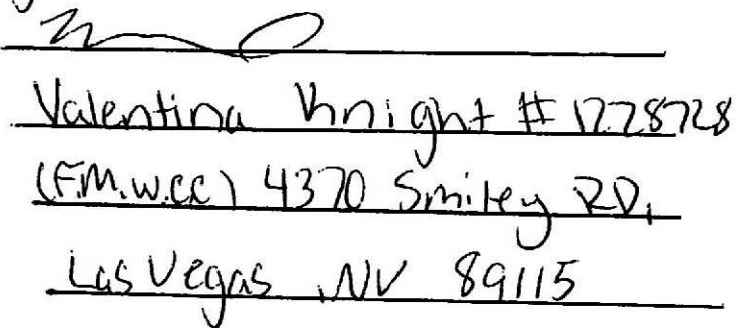 Valentina Knight # 1228728
(F.M.W.CC) 4370 Smiley RD,
Las Vegas, NV 89115